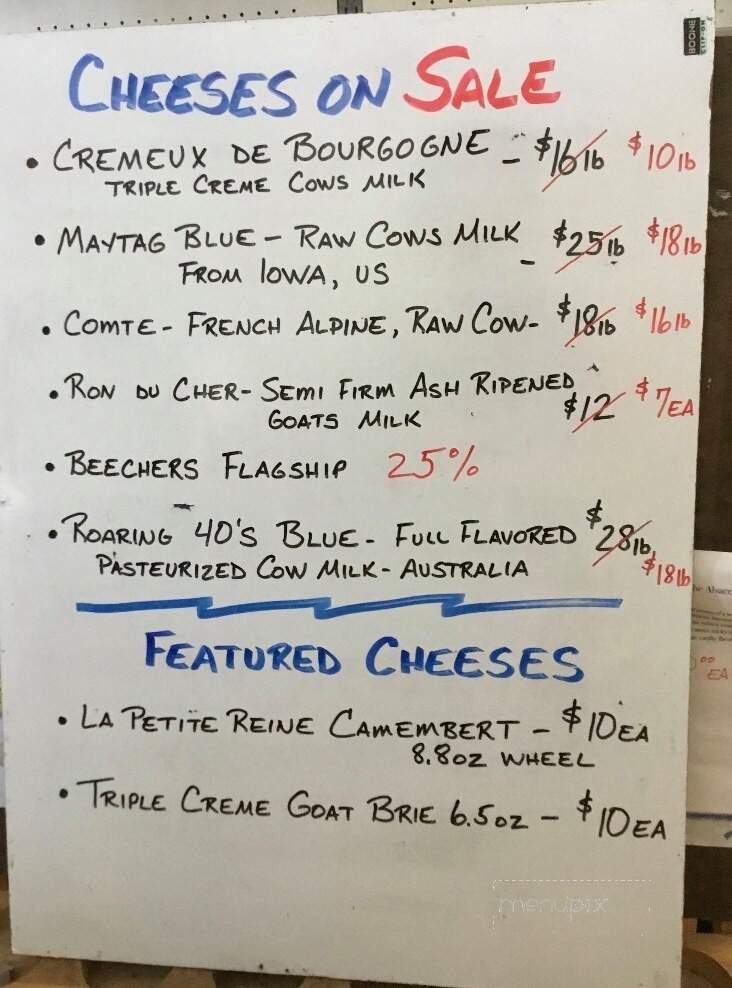 BOONE
CHEESES ON SALE
• CREMEUX DE BOURGOGNE - $16 lb $10 lb
TRIPLE CREME COWS MILK
• MAYTAG BLUE - RAW COWS MILK - $25 lb $18 lb
FROM IOWA, US
• COMTE - FRENCH ALPINE, RAW COW - $18 lb $16 lb
• RON DU CHER - SEMI FIRM ASH RIPENED
GOATS MILK $12 $7 EA
• BEECHERS FLAGSHIP 25%
• ROARING 40'S BLUE - FULL FLAVORED $28 lb
PASTEURIZED COW MILK - AUSTRALIA $18 lb
FEATURED CHEESES
• LA PETITE REINE CAMEMBERT - $10 EA
8.8 OZ WHEEL
• TRIPLE CREME GOAT BRIE 6.5 OZ - $10 EA
EA
menupix